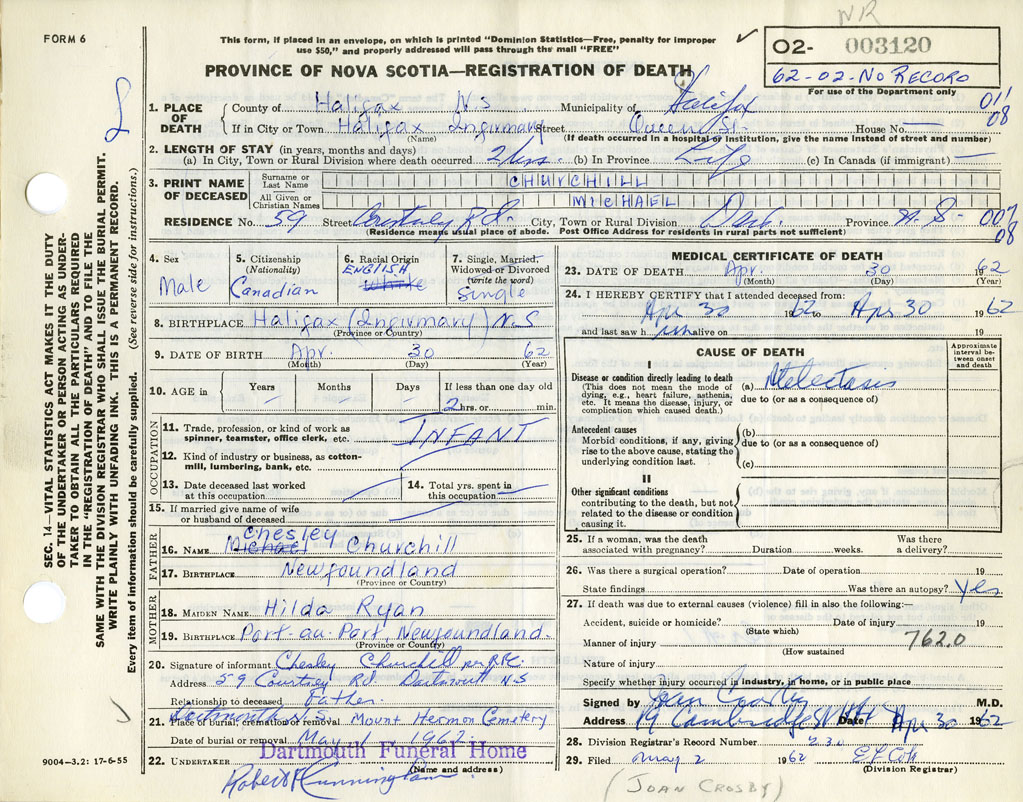 NR
FORM 6
This form, if placed in an envelope, on which is printed "Dominion Statistics—Free, penalty for improper
use $50," and properly addressed will pass through the mail "FREE"
02- 003120
62-02-NO RECORD
For use of the Department only
PROVINCE OF NOVA SCOTIA—REGISTRATION OF DEATH
1. PLACE OF DEATH
County of Halifax N.S Municipality of Halifax
011
08
If in City or Town Halifax Infirmary Street Queen St. House No. —
(Name) (If death occurred in a hospital or institution, give the name instead of street and number)
2. LENGTH OF STAY (in years, months and days)
(a) In City, Town or Rural Division where death occurred 2 hrs. (b) In Province Life (c) In Canada (if immigrant) —
3. PRINT NAME OF DECEASED
Surname or Last Name CHURCHILL
All Given or Christian Names MICHAEL
RESIDENCE No. 59 Street Courtney Rd. City, Town or Rural Division Dart. Province N.S-
007
08
(Residence means usual place of abode. Post Office Address for residents in rural parts not sufficient)
4. Sex Male
5. Citizenship (Nationality) Canadian
6. Racial Origin ENGLISH white
7. Single, Married, Widowed or Divorced (write the word) single
8. BIRTHPLACE Halifax (Infirmary) N.S
(Province or Country)
9. DATE OF BIRTH Apr. 30 62
(Month) (Day) (Year)
10. AGE in Years — Months — Days — If less than one day old
2 hrs. or min.
OCCUPATION
11. Trade, profession, or kind of work as
spinner, teamster, office clerk, etc. INFANT
12. Kind of industry or business, as cotton-
mill, lumbering, bank, etc.
13. Date deceased last worked
at this occupation
14. Total yrs. spent in
this occupation
15. If married give name of wife
or husband of deceased
FATHER
16. NAME Michael Chesley Churchill
17. BIRTHPLACE Newfoundland
(Province or Country)
MOTHER
18. MAIDEN NAME Hilda Ryan
19. BIRTHPLACE Port-au-Port, Newfoundland.
(Province or Country)
20. Signature of informant Chesley Churchill per
Address 59 Courtney Rd. Dartmouth N.S
Relationship to deceased Father.
Dartmouth N.S
21. Place of burial, cremation or removal Mount Hermon Cemetery
Date of burial or removal May 1 1962.
Dartmouth Funeral Home
22. UNDERTAKER Robert Cunningham
(Name and address)
MEDICAL CERTIFICATE OF DEATH
23. DATE OF DEATH Apr. 30 1962
(Month) (Day) (Year)
24. I HEREBY CERTIFY that I attended deceased from:
Apr 30 1962 to Apr 30 1962
and last saw him alive on 19
CAUSE OF DEATH
Approximate interval between onset and death
I
Disease or condition directly leading to death
(This does not mean the mode of
dying, e.g., heart failure, asthenia,
etc. It means the disease, injury, or
complication which caused death.)
(a) Atelectasis
due to (or as a consequence of)
Antecedent causes
Morbid conditions, if any, giving
rise to the above cause, stating the
underlying condition last.
(b)
due to (or as a consequence of)
(c)
II
Other significant conditions
contributing to the death, but not
related to the disease or condition
causing it.
25. If a woman, was the death Was there
associated with pregnancy? Duration weeks. a delivery?
26. Was there a surgical operation? Date of operation 19
State findings Was there an autopsy? Yes
27. If death was due to external causes (violence) fill in also the following:—
Accident, suicide or homicide? Date of injury 19
(State which)
Manner of injury 762.0
(How sustained
Nature of injury
Specify whether injury occurred in industry, in home, or in public place
Signed by Joan Crosby M.D.
Address 19 Cambridge St Date Apr 30 1962
28. Division Registrar's Record Number 230
29. Filed May 2 1962
(Division Registrar)
(JOAN CROSBY)
SEC. 14—VITAL STATISTICS ACT MAKES IT THE DUTY
OF THE UNDERTAKER OR PERSON ACTING AS UNDER-
TAKER TO OBTAIN ALL THE PARTICULARS REQUIRED
IN THE "REGISTRATION OF DEATH" AND TO FILE THE
SAME WITH THE DIVISION REGISTRAR WHO SHALL ISSUE THE BURIAL PERMIT.
WRITE PLAINLY WITH UNFADING INK. THIS IS A PERMANENT RECORD.
Every item of information should be carefully supplied. (See reverse side for instructions.)
9004—3.2: 17-6-55